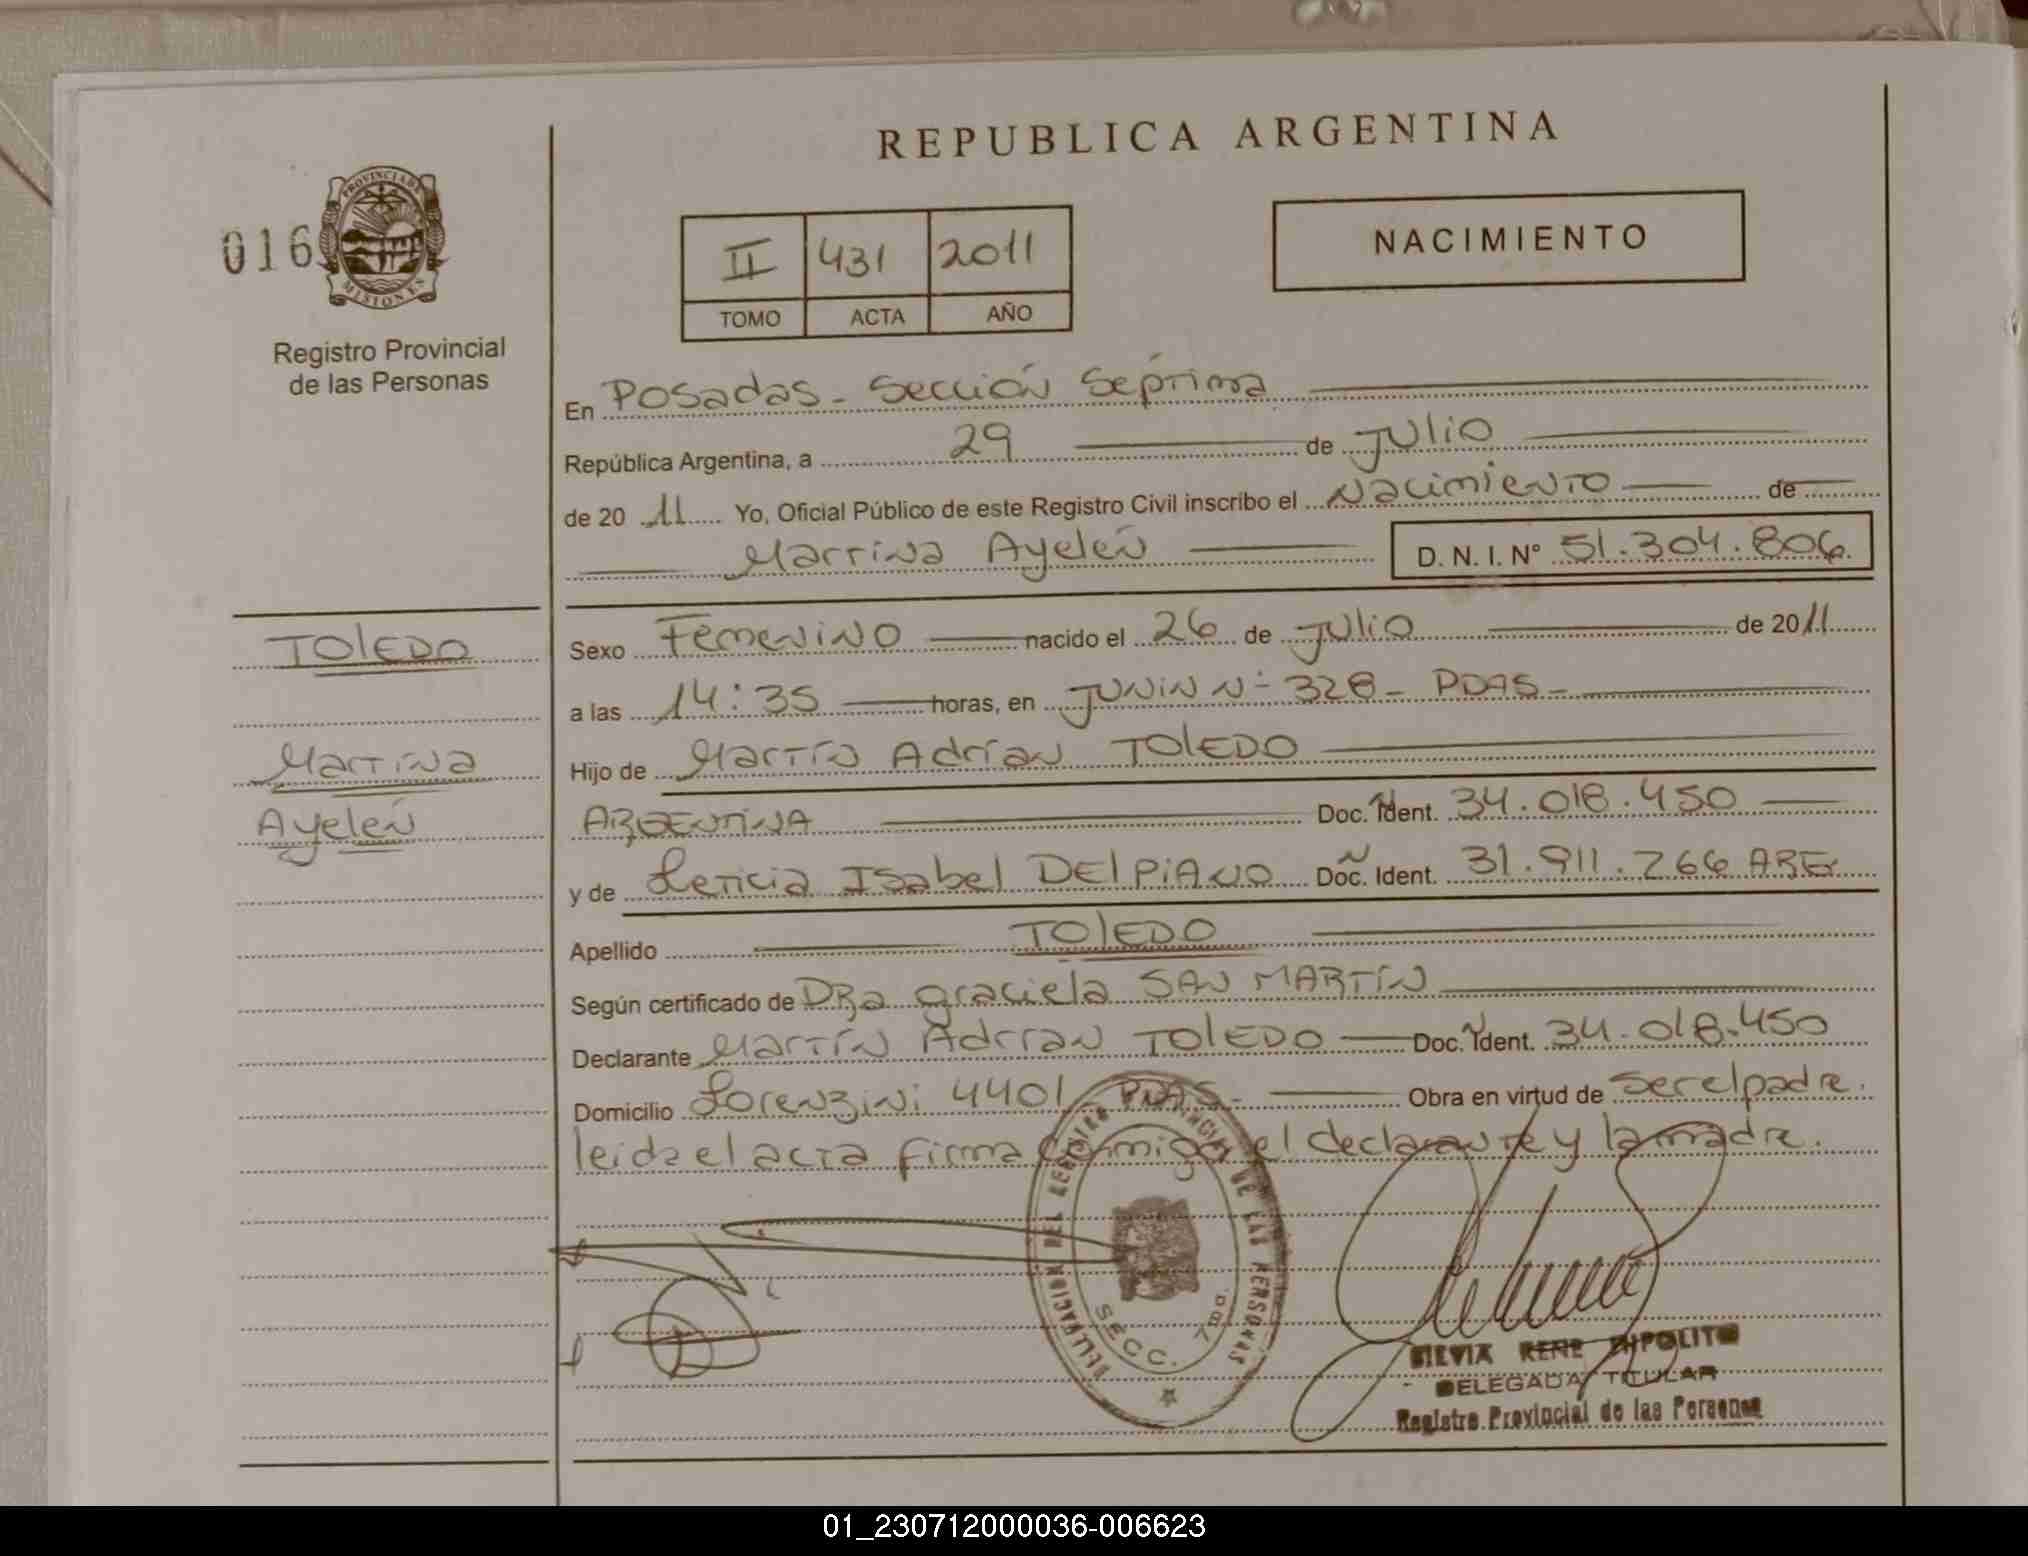 REPUBLICA ARGENTINA
016
PROVINCIA DE MISIONES
Registro Provincial
de las Personas
II 431 2011
TOMO ACTA AÑO
NACIMIENTO
En Posadas - Sección Séptima
República Argentina, a 29 de Julio
de 20 11 Yo, Oficial Público de este Registro Civil inscribo el Nacimiento de
Martina Ayelén D. N. I. N° 51.304.806
TOLEDO
Martina
Ayelén
Sexo Femenino nacido el 26 de Julio de 2011
a las 14:35 horas, en Junin N- 328 - PDAS -
Hijo de Martín Adrían TOLEDO
ARGENTINA Doc. Ident. 34.018.450
y de Leticia Isabel DELPIANO Doc. Ident. 31.911.266 ARG
Apellido TOLEDO
Según certificado de DRa graciela SAN MARTÍN
Declarante Martín Adrian TOLEDO Doc. Ident. 34.018.450
Domicilio Lorenzini 4401 PDAS - Obra en virtud de ser el padre.
leida el acta firma conmigo el declarante y la madre.
DELEGACION DEL REGISTRO PROVINCIAL DE LAS PERSONAS
SECC. 7ma.
SILVIA RENE HIPOLITO
DELEGADA TITULAR
Registro Provincial de las Personas
01_230712000036-006623